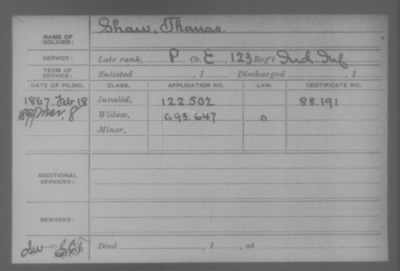 NAME OF SOLDIER: Shaw, Thomas.
SERVICE: Late rank, P. Co. E, 123 Reg't Ind. Inf
TERM OF SERVICE: Enlisted , 1 Discharged , 1
DATE OF FILING. CLASS. APPLICATION NO. LAW. CERTIFICATE NO.
1867. Feb 18 Invalid, 122.502 83.191
Mar. 8 Widow, 693.647 o
Minor,
ADDITIONAL SERVICES:
REMARKS:
Died , 1 , at